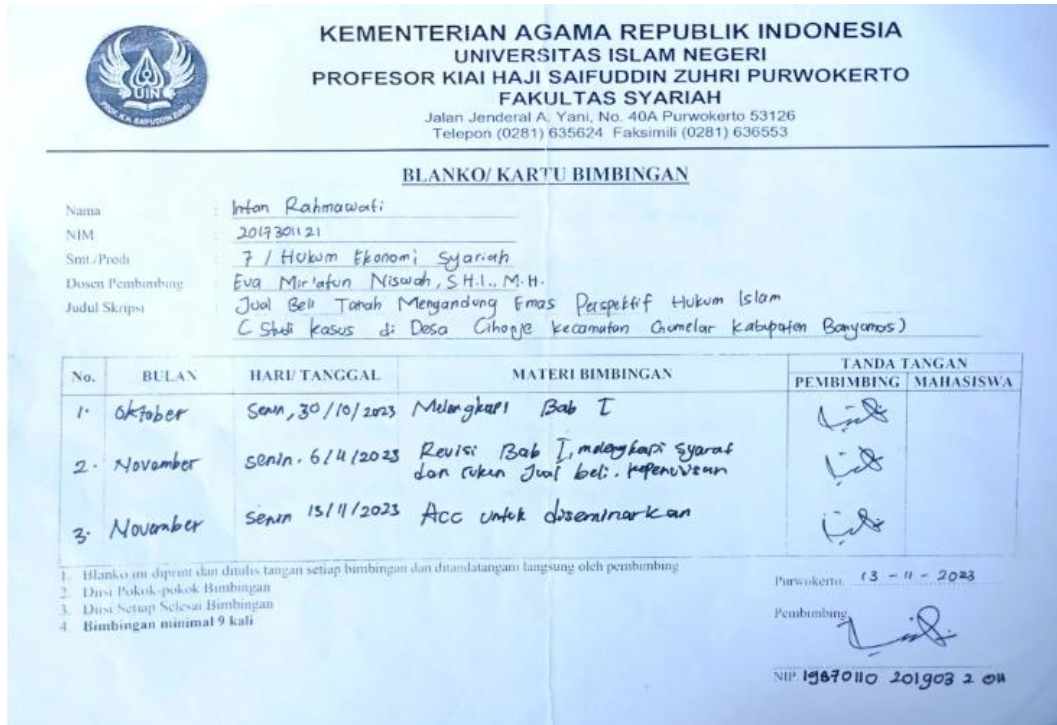 UIN
PROF. K.H. SAIFUDDIN ZUHRI
KEMENTERIAN AGAMA REPUBLIK INDONESIA
UNIVERSITAS ISLAM NEGERI
PROFESOR KIAI HAJI SAIFUDDIN ZUHRI PURWOKERTO
FAKULTAS SYARIAH
Jalan Jenderal A. Yani, No. 40A Purwokerto 53126
Telepon (0281) 635624 Faksimili (0281) 636553
BLANKO/ KARTU BIMBINGAN
Nama : Intan Rahmawati
NIM : 2017301121
Smt./Prodi : 7 / Hukum Ekonomi Syariah
Dosen Pembimbing : Eva Mir'atun Niswah, S.H.I., M.H.
Judul Skripsi : Jual Beli Tanah Mengandung Emas Perspektif Hukum Islam
( Studi kasus di Desa Cihonje kecamatan Gumelar Kabupaten Banyumas)
No. BULAN HARI/ TANGGAL MATERI BIMBINGAN TANDA TANGAN
PEMBIMBING MAHASISWA
1. Oktober Senin, 30/10/2023 Melengkapi Bab I
2. November Senin. 6/11/2023 Revisi Bab I, melengkapi syarat
dan rukun Jual beli. kepenulisan
3. November Senin 13/11/2023 Acc untuk diseminarkan
1. Blanko ini diprint dan ditulis tangan setiap bimbingan dan ditandatangani langsung oleh pembimbing
2. Diisi Pokok-pokok Bimbingan
3. Diisi Setiap Selesai Bimbingan
4. Bimbingan minimal 9 kali
Purwokerto, 13 - 11 - 2023
Pembimbing,
NIP. 19870110 201903 2 011